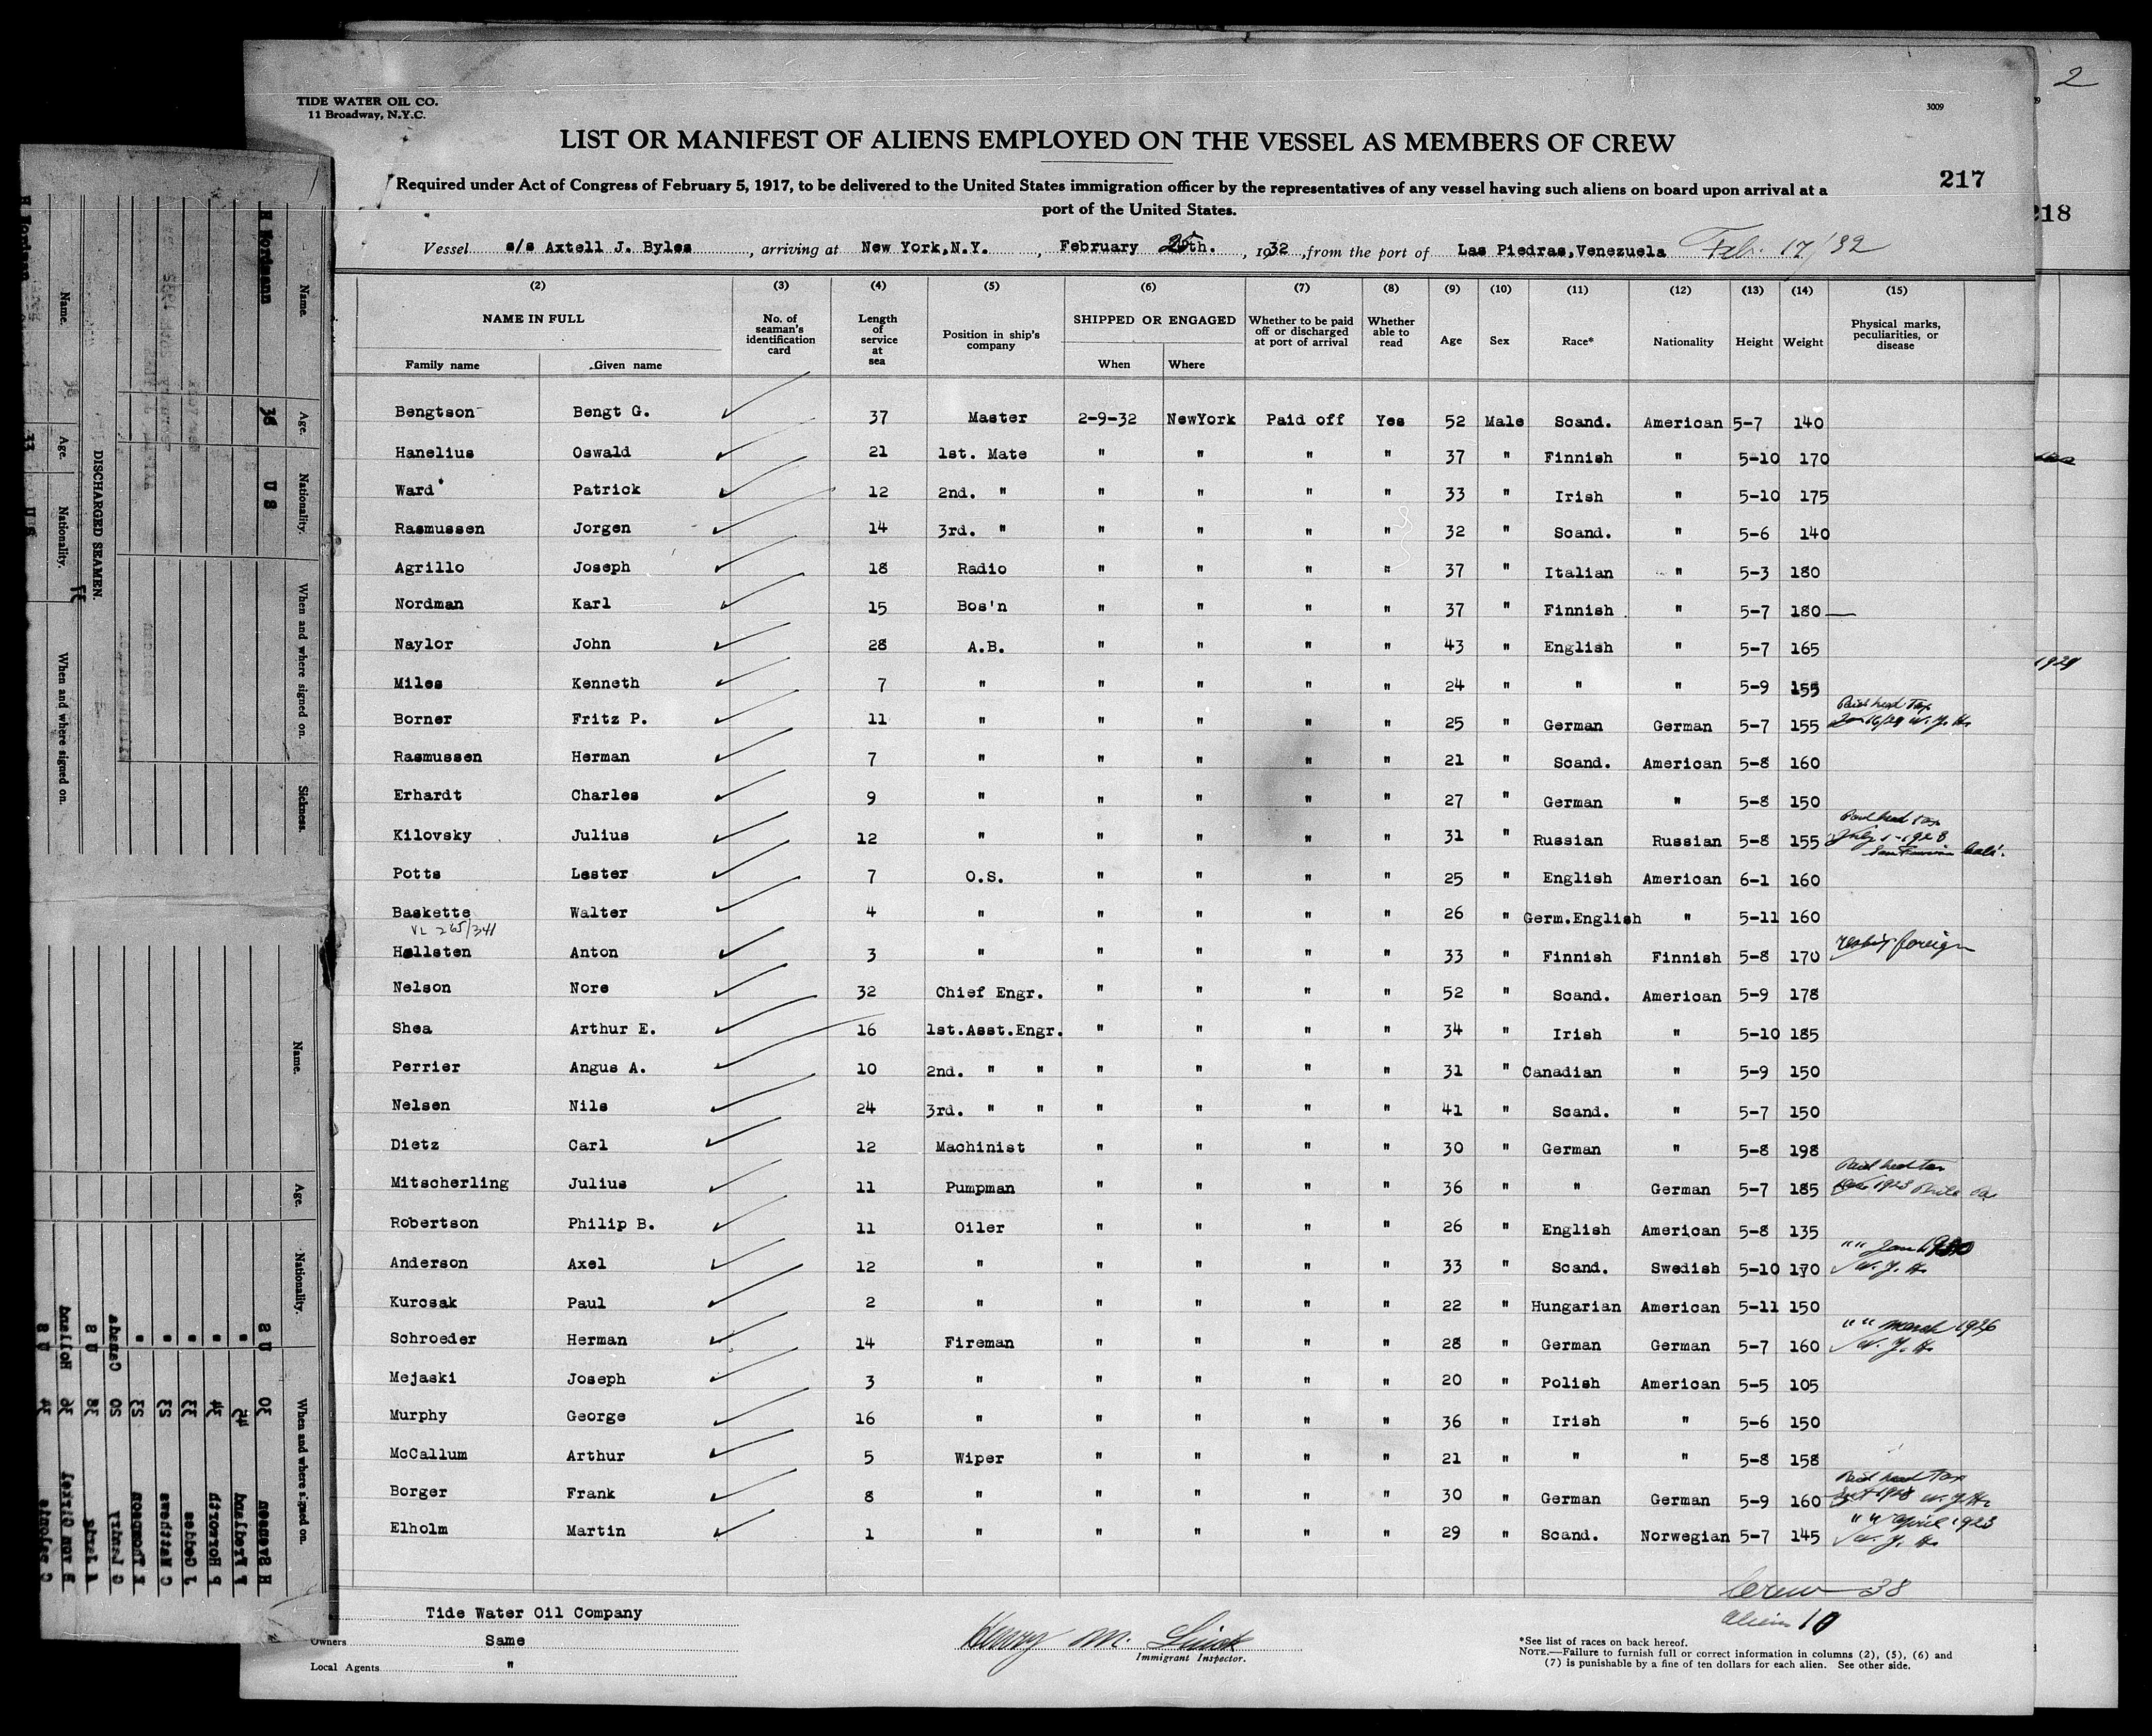 2
TIDE WATER OIL CO.
11 Broadway, N.Y.C.
3009
LIST OR MANIFEST OF ALIENS EMPLOYED ON THE VESSEL AS MEMBERS OF CREW
Required under Act of Congress of February 5, 1917, to be delivered to the United States immigration officer by the representatives of any vessel having such aliens on board upon arrival at a
port of the United States.
217
218
Vessel s/s Axtell J. Byles, arriving at New York,N.Y., February 25th., 1932, from the port of Las Piedras,Venezuela Feb. 17/32
(2) (3) (4) (5) (6) (7) (8) (9) (10) (11) (12) (13) (14) (15)
NAME IN FULL
Family name Given name
No. of seaman's identification card
Length of service at sea
Position in ship's company
SHIPPED OR ENGAGED
When Where
Whether to be paid off or discharged at port of arrival
Whether able to read
Age Sex Race* Nationality Height Weight
Physical marks, peculiarities, or disease
Bengtson Bengt G. 37 Master 2-9-32 NewYork Paid off Yes 52 Male Scand. American 5-7 140
Hanelius Oswald 21 1st. Mate " " " " 37 " Finnish " 5-10 170
Ward Patrick 12 2nd. " " " " " 33 " Irish " 5-10 175
Rasmussen Jorgen 14 3rd. " " " " " 32 " Scand. " 5-6 140
Agrillo Joseph 18 Radio " " " " 37 " Italian " 5-3 180
Nordman Karl 15 Bos'n " " " " 37 " Finnish " 5-7 180
Naylor John 28 A.B. " " " " 43 " English " 5-7 165
Miles Kenneth 7 " " " " " 24 " " " 5-9 155
Borner Fritz P. 11 " " " " " 25 " German German 5-7 155 Paid head Tax 16/29 N.Y.H.
Rasmussen Herman 7 " " " " " 21 " Scand. American 5-8 160
Erhardt Charles 9 " " " " " 27 " German " 5-8 150
Kilovsky Julius 12 " " " " " 31 " Russian Russian 5-8 155 Paid head tax July 1-1928 San Francisco Cali.
Potts Lester 7 O.S. " " " " 25 " English American 6-1 160
Baskette Walter 4 " " " " " 26 " Germ.English " 5-11 160
VL 265/341
Hallsten Anton 3 " " " " " 33 " Finnish Finnish 5-8 170 foreign
Nelson Nore 32 Chief Engr. " " " " 52 " Scand. American 5-9 178
Shea Arthur E. 16 1st.Asst.Engr. " " " " 34 " Irish " 5-10 185
Perrier Angus A. 10 2nd. " " " " " " 31 " Canadian " 5-9 150
Nelsen Nils 24 3rd. " " " " " " 41 " Scand. " 5-7 150
Dietz Carl 12 Machinist " " " " 30 " German " 5-8 198
Mitscherling Julius 11 Pumpman " " " " 36 " " German 5-7 185 Paid head tax 1923 Phila Pa
Robertson Philip B. 11 Oiler " " " " 26 " English American 5-8 135
Anderson Axel 12 " " " " " 33 " Scand. Swedish 5-10 170 " " Jan N.Y.H.
Kurosak Paul 2 " " " " " 22 " Hungarian American 5-11 150
Schroeder Herman 14 Fireman " " " " 28 " German German 5-7 160 " " March 1926 N.Y.H.
Mejaski Joseph 3 " " " " " 20 " Polish American 5-5 105
Murphy George 16 " " " " " 36 " Irish " 5-6 150
McCallum Arthur 5 Wiper " " " " 21 " " " 5-8 158
Borger Frank 8 " " " " " 30 " German German 5-9 160 Paid head Tax N.Y.H.
Elholm Martin 1 " " " " " 29 " Scand. Norwegian 5-7 145 " " April 1923 N.Y.H.
Crew 38
Aliens 10
Tide Water Oil Company
Owners Same
Local Agents "
Henry M.
Immigrant Inspector.
*See list of races on back hereof.
NOTE.—Failure to furnish full or correct information in columns (2), (5), (6) and
(7) is punishable by a fine of ten dollars for each alien. See other side.
1929
Name. Age. Nationality. When and where signed on. Sickness.
H Nordmann 36 U S
DISCHARGED SEAMEN.
Name. Age. Nationality. When and where signed on.
Name. Age. Nationality. When and where signed on.